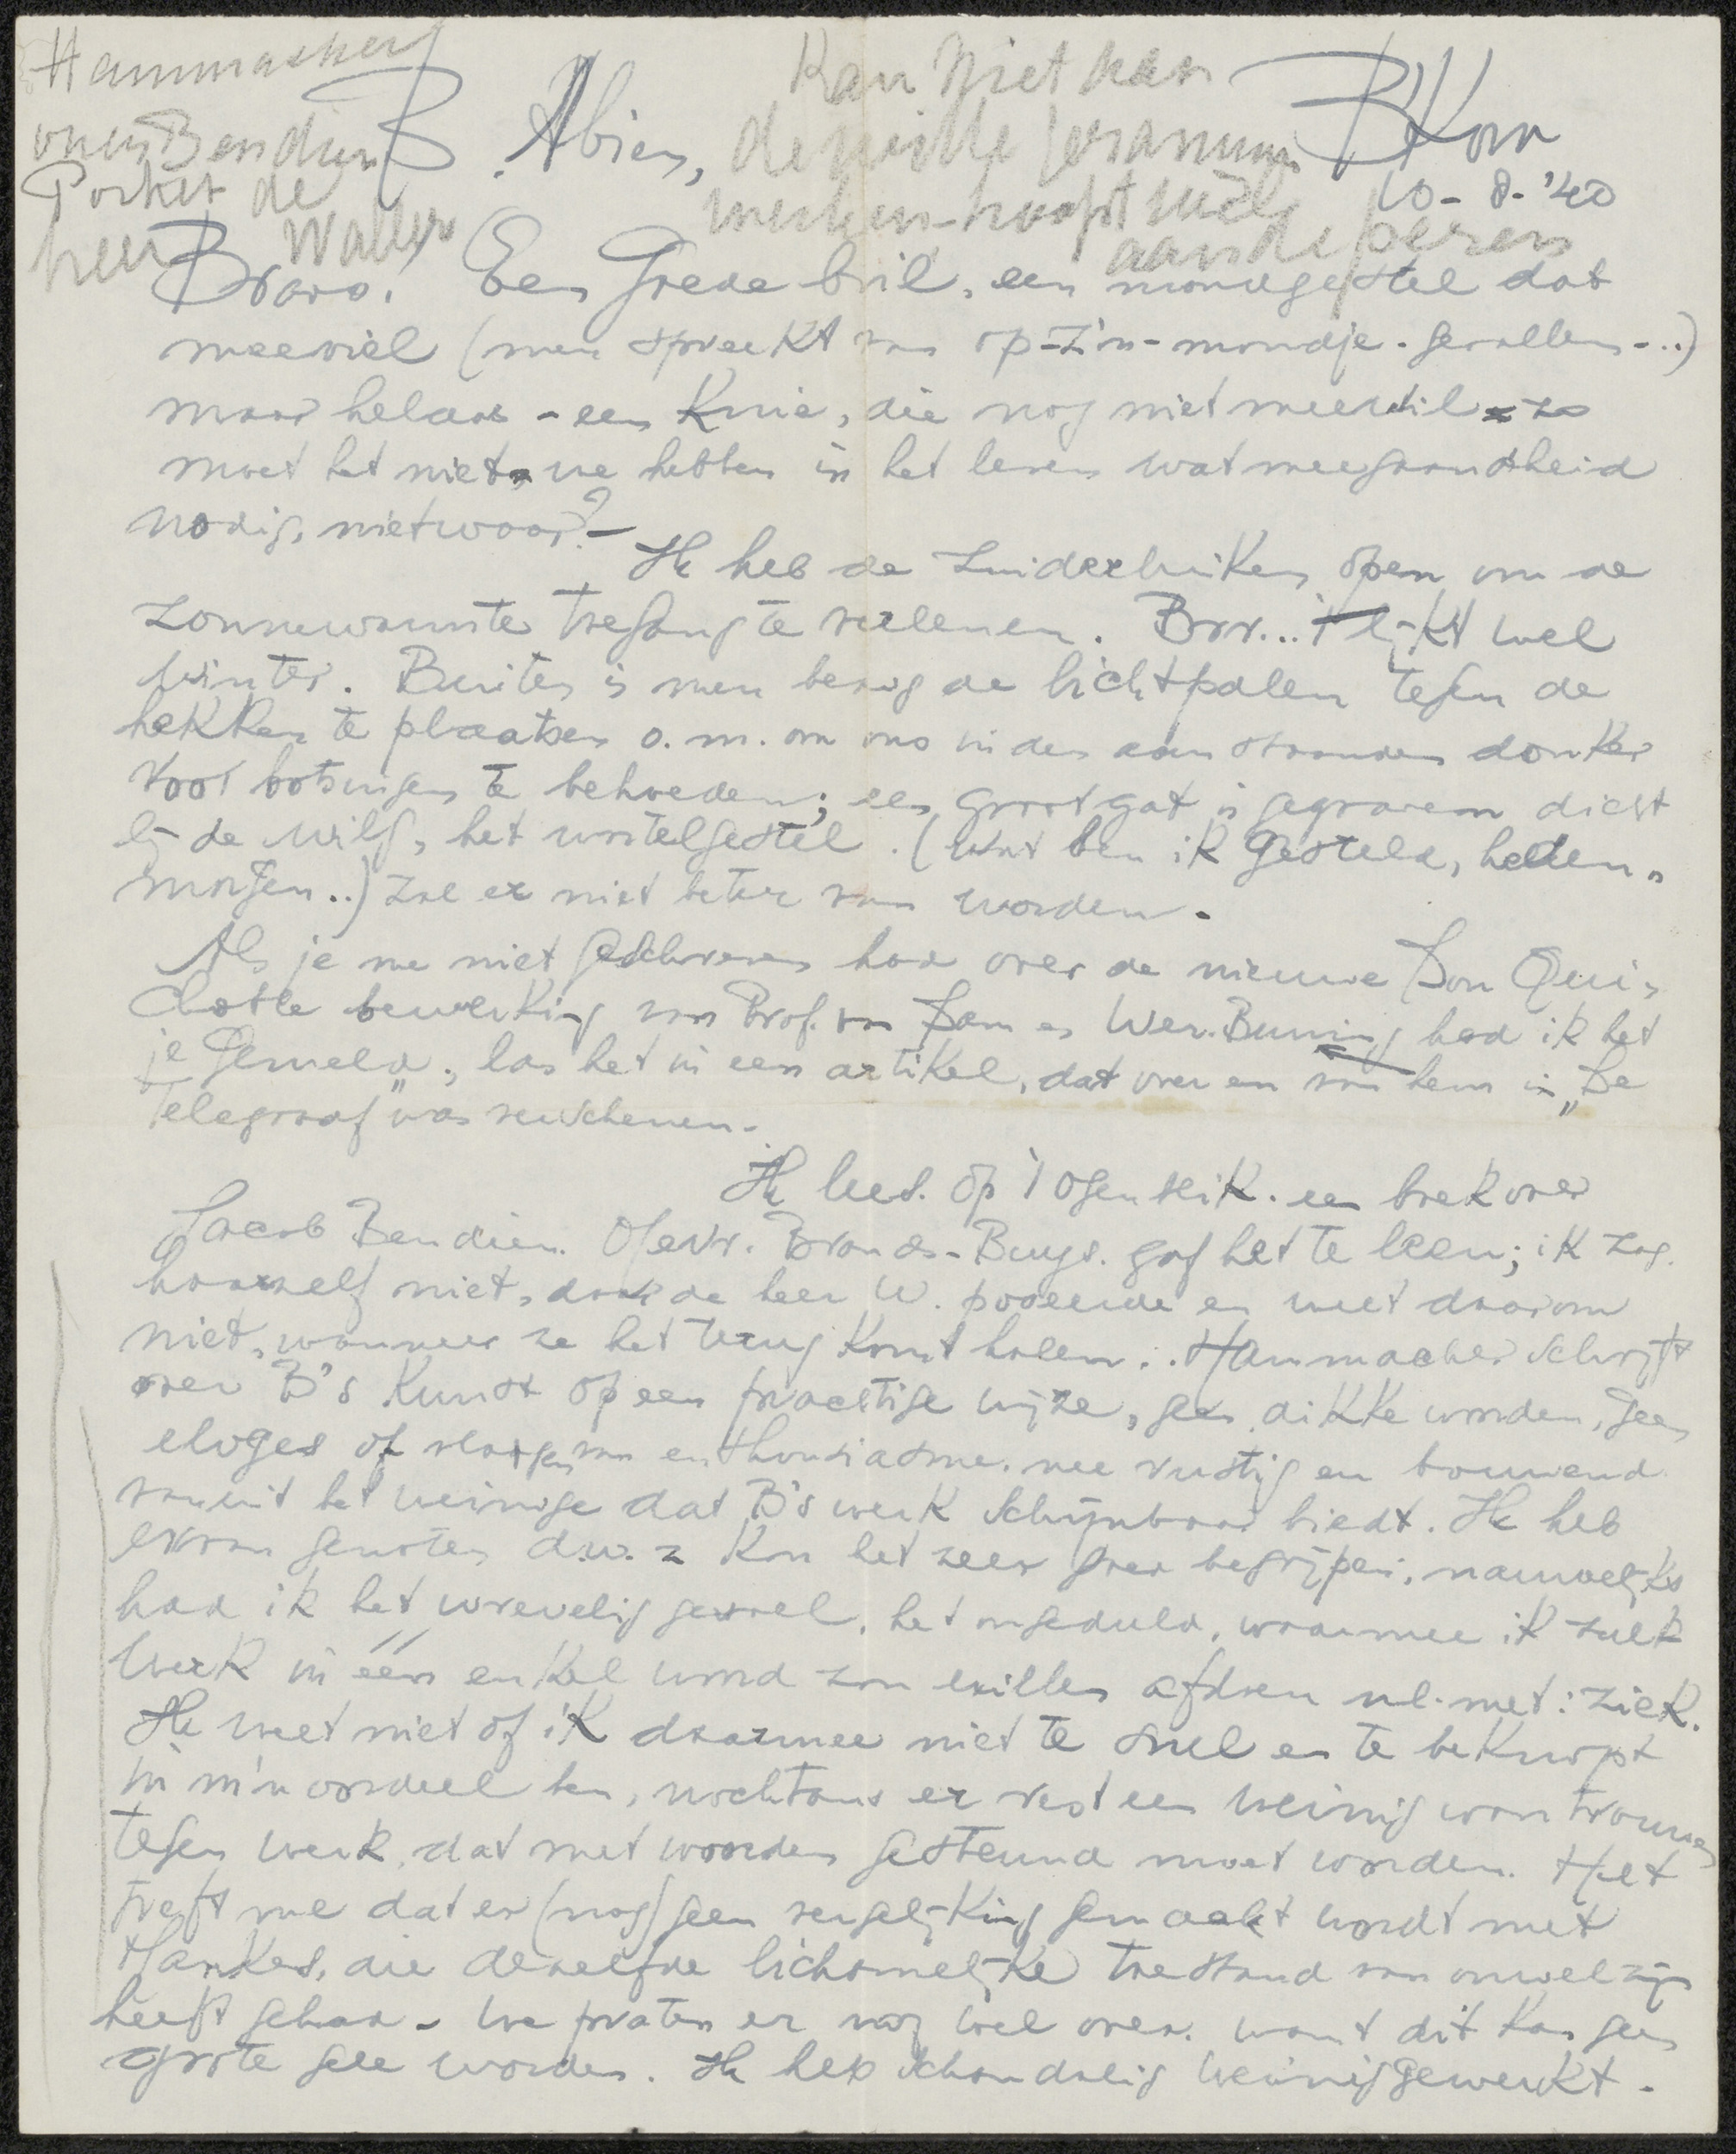 Hammacher
over Bendien
Portret de
heer Waller
Kan niet aan
de witte geraniums
werken - hoogst
aan de peren
B. Abien,
10-8-'40
Bravo! Een goede bril, een mondgestel dat
meeviel (men spreekt van op-z'n-mondje-gevallen-..)
maar helaas - een knie, die nog niet meewil - zo
moet het niet, we hebben in het leven wat meegaandheid
nodig, nietwaar? -
Ik heb de Zuiderluiken open om de
zonnewarmte toegang te verlenen. Brr... 't lijkt wel
winter. Buiten is men bezig de lichtpalen tegen de
hekken te plaatsen o.m. om ons in den aanstaanden donker
voor botsingen te behoeden; een groot gat is gegraven dicht
bij de wilg, het wortelgestel. (Wat ben ik gesteld, heden-
morgen..) zal er niet beter van worden.
Als je me niet geschreven had over de nieuwe Don Qui-
chotte bewerking van Prof. van Dam en Wer. Buning had ik het
je gemeld; las het in een artikel, dat over en van hem in „De
Telegraaf" was verschenen.
Ik lees op 't ogenblik een boek over
Jacob Bendien. Mevr. Brands-Buys gaf het te leen; ik zag
haarzelf niet, daar de heer W. poseerde en weet daarom
niet, wanneer ze het terug komt halen... Hammacher schrijft
over B's kunst op een prachtige wijze, geen dikke woorden, geen
eloges of vlagen van enthousiasme, nee rustig en bouwend
vanuit het weinige dat B's werk schijnbaar biedt. Ik heb
ervan genoten d.w.z kon het zeer goed begrijpen, nauwelijks
had ik het wrevelig gevoel, het ongeduld, waarmee ik zulk
werk in één enkel woord zou willen afdoen nl. met: ziek.
Ik weet niet of ik daarmee niet te snel en te beknopt
in m'n oordeel ben, nochtans er rest een weinig wantrouwen
tegen werk, dat met woorden gesteund moet worden. Het
treft me dat er (nog) geen vergelijking gemaakt wordt met
Mankes, die dezelfde lichamelijke toestand van onwelzijn
heeft gehad - We praten er nog wel over. want dit kan geen
grote gele worden. Ik heb schandelig weinig gewerkt.